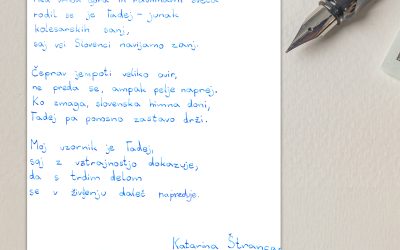 rodil se je Tadej - junak
kolesarskih sanj,
saj vsi Slovenci navijamo zanj.
Čeprav jempoti veliko ovir,
ne preda se, ampak pelje naprej.
Ko zmaga, slovenska himna doni,
Tadej pa ponosno zastavo drži.
Moj vzornik je Tadej,
saj z vztrajnostjo dokazuje,
da s trdim delom
se v življenju daleč napreduje.
Katarina